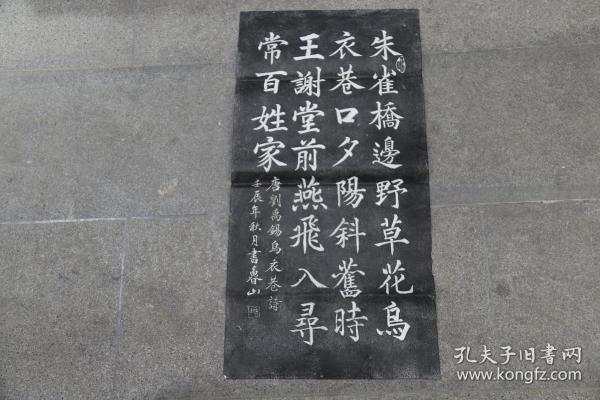 朱雀橋邊野草花烏
衣巷口夕陽斜舊時
王謝堂前燕飛入尋
常百姓家
唐劉禹錫烏衣巷詩
壬辰年秋月書魯山
孔夫子旧書网
www.kongfz.com